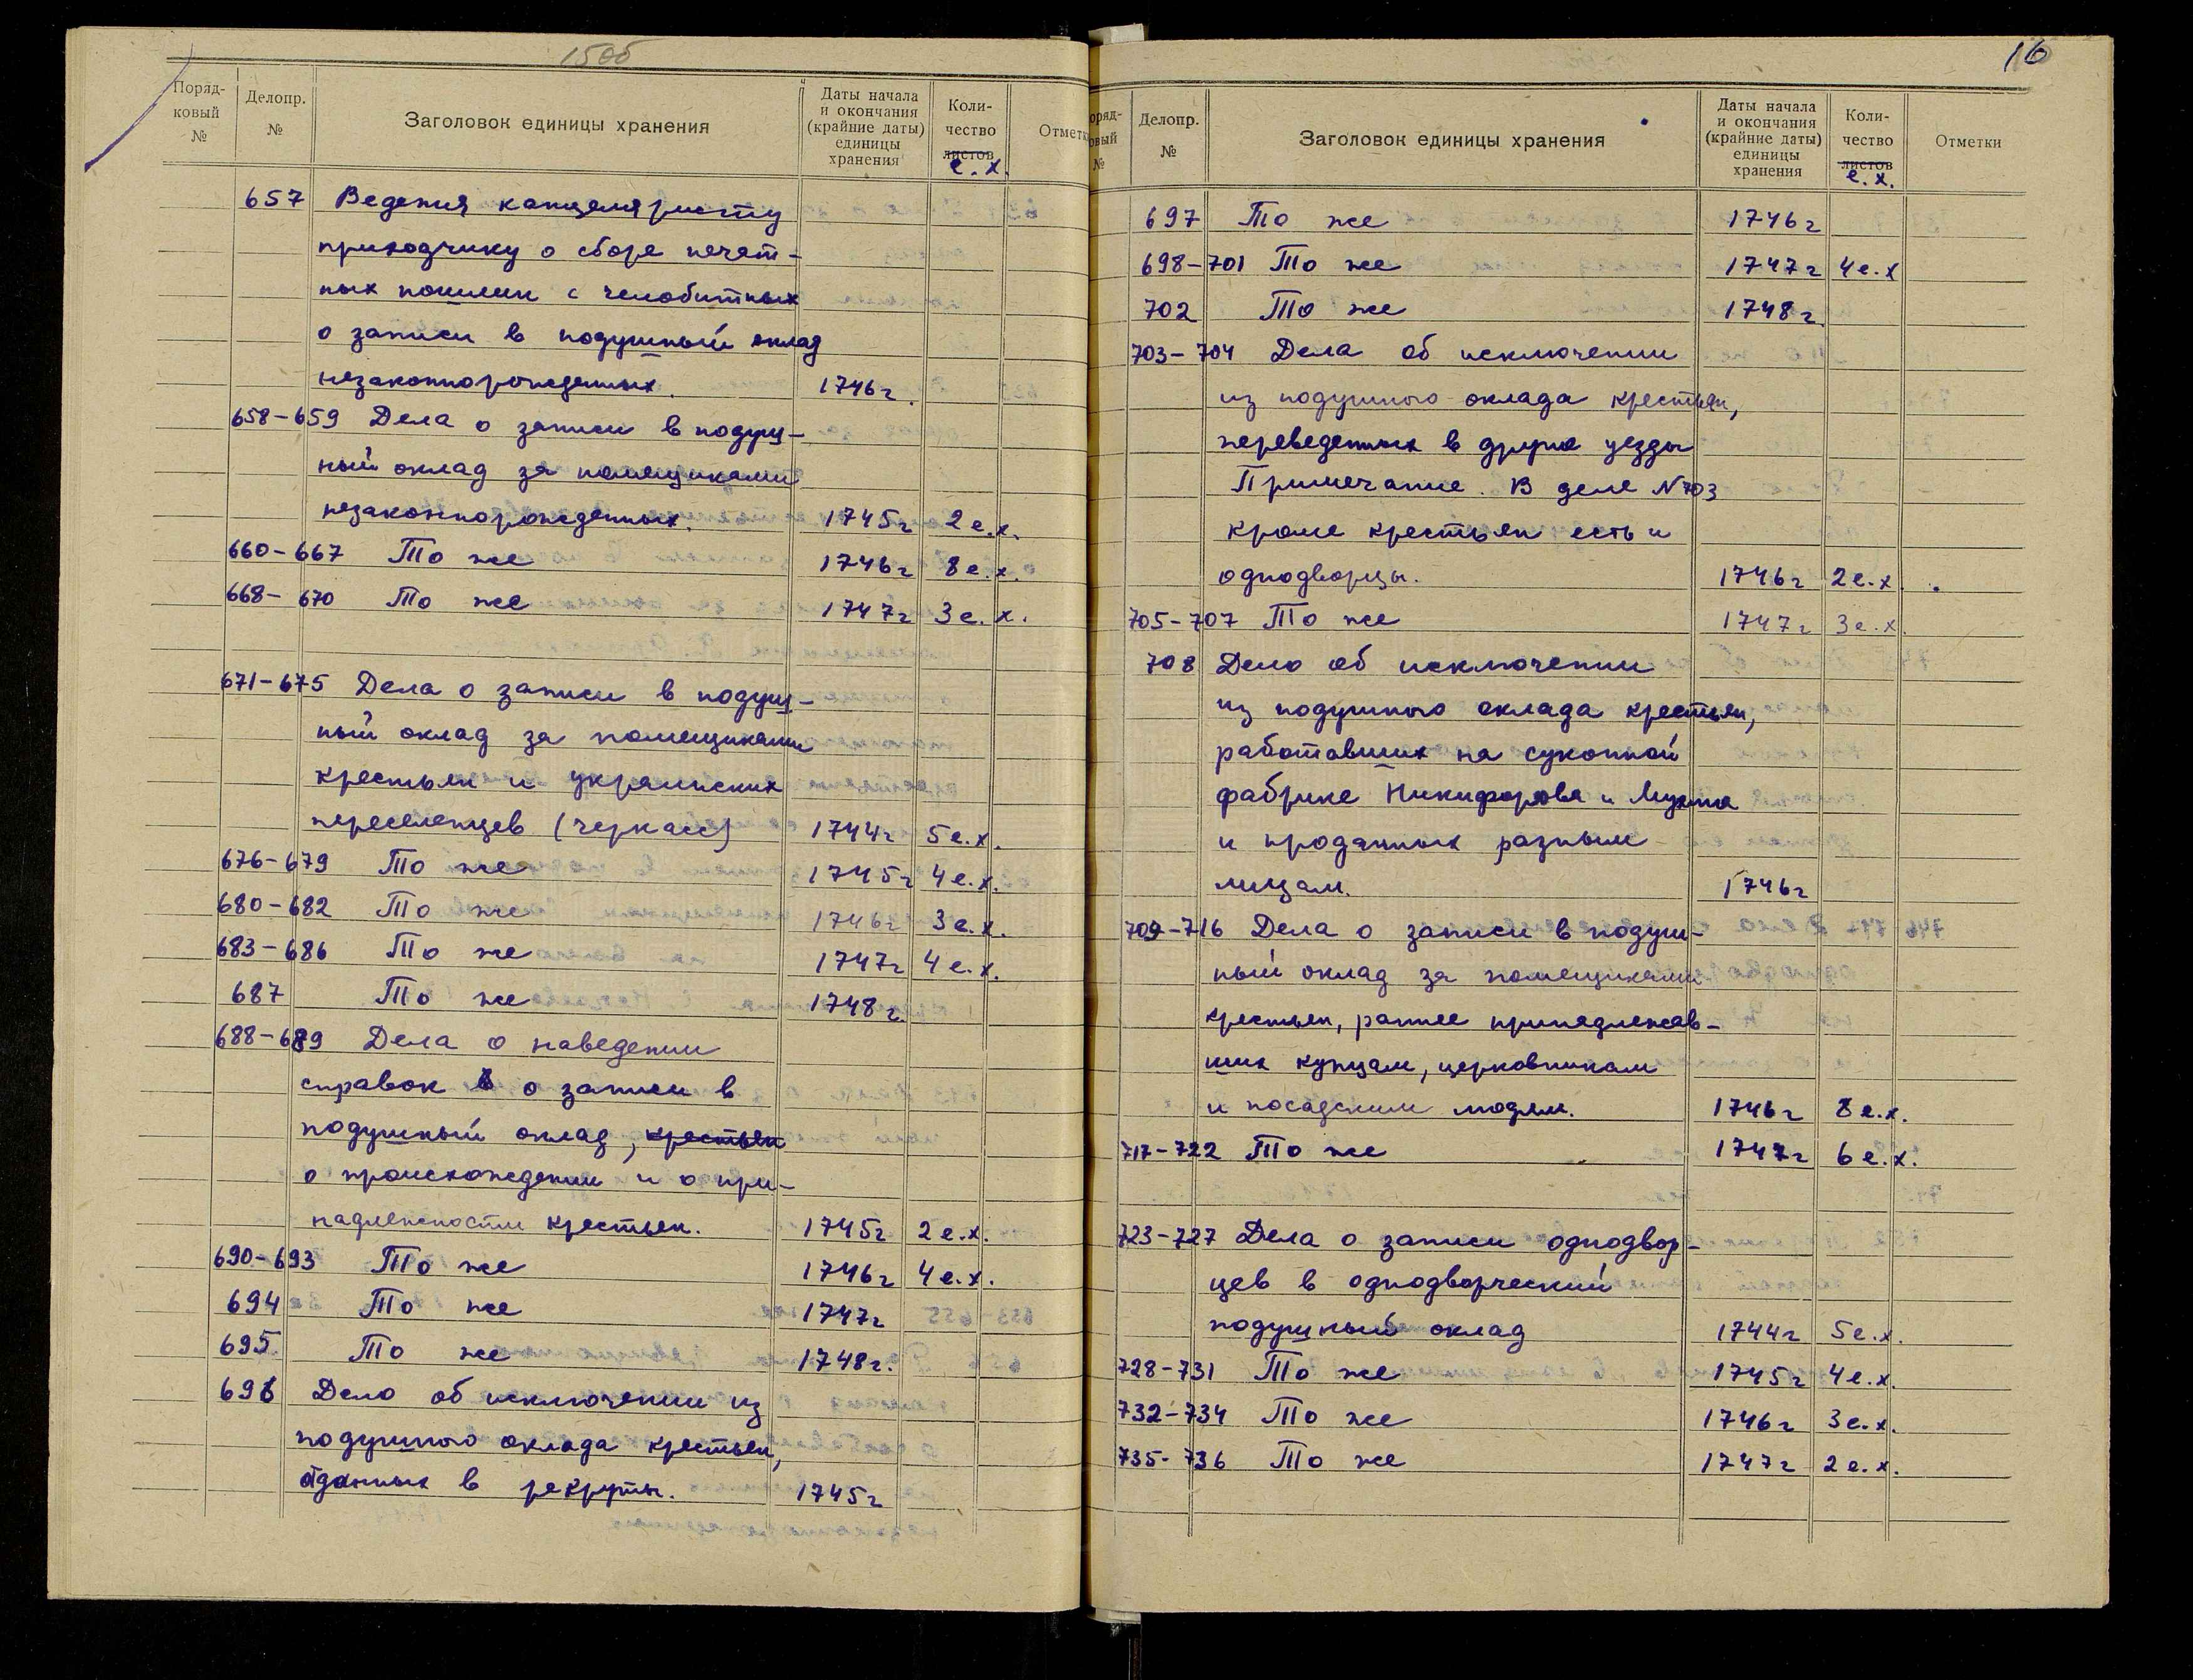 15об
Поряд-
ковый
№
Делопр.
№
Заголовок единицы хранения
Даты начала
и окончания
(крайние даты)
единицы
хранения
Коли-
чество
листов
е.х.
Отметк
657 Ведения канцеляристу
приходчику о сборе печат-
ных пошлин с челобитных
о записи в подушный оклад
незаконнорожденных. 1746г.
658-659 Дела о записи в подуш-
ный оклад за помещиками
незаконнорожденных. 1745г 2е.х.
660-667 То же 1746г 8е.х.
668-670 То же 1747г 3е.х.
671-675 Дела о записи в подуш-
ный оклад за помещиками
крестьян и украинских
переселенцев (черкасс) 1744г 5е.х.
676-679 То же 1745г 4е.х.
680-682 То же 1746г 3е.х.
683-686 То же 1747г 4е.х.
687 То же 1748г.
688-689 Дела о наведении
справок о записи в
подушный оклад, крестьян
о происхождении и о при-
надлежности крестьян. 1745г 2е.х.
690-693 То же 1746г 4е.х.
694 То же 1747г
695 То же 1748г.
696 Дело об исключении из
подушного оклада крестьян,
отданных в рекруты. 1745г
16
оряд-
овый
№
Делопр.
№
Заголовок единицы хранения
Даты начала
и окончания
(крайние даты)
единицы
хранения
Коли-
чество
листов
е.х.
Отметки
697 То же 1746г
698-701 То же 1747г 4е.х
702 То же 1748г.
703-704 Дела об исключении
из подушного оклада крестьян,
переведенных в другие уезды
Примечание. В деле №703
кроме крестьян есть и
однодворцы. 1746г 2е.х.
705-707 То же 1747г 3е.х.
708 Дело об исключении
из подушного оклада крестьян,
работавших на суконной
фабрике Никифорова и
и проданных разным
лицам. 1746г
709-716 Дела о записи в подуш-
ный оклад за помещиками
крестьян, раннее принадлежав-
ших купцам, церковникам
и посадским людям. 1746г 8е.х.
717-722 То же 1747г 6е.х.
723-727 Дела о записи однодвор-
цев в однодворческий
подушный оклад 1744г 5е.х.
728-731 То же 1745г 4е.х.
732-734 То же 1746г 3е.х.
735-736 То же 1747г 2е.х.